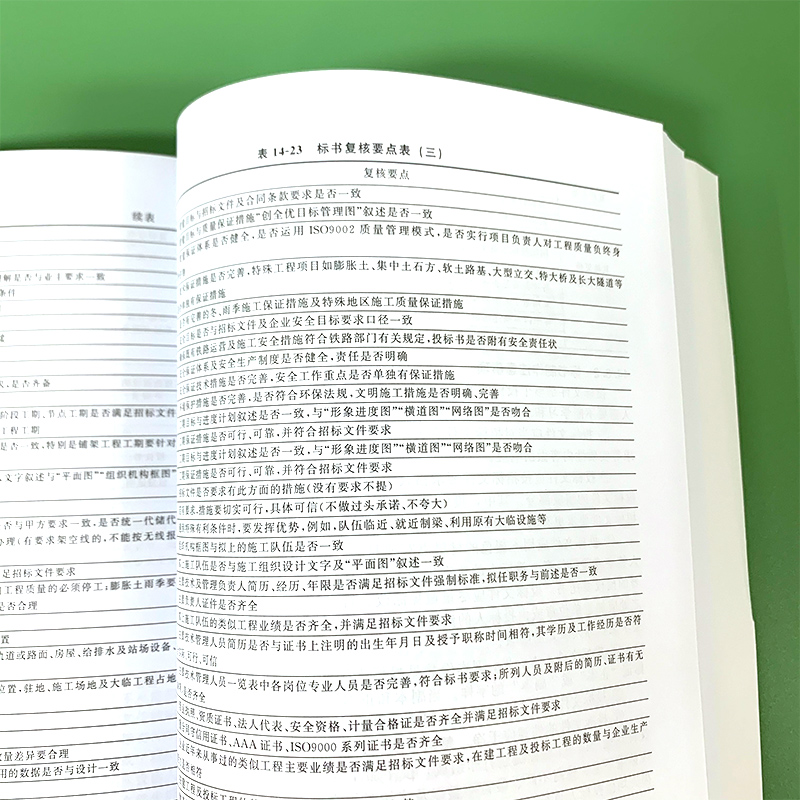 续表
解是否与业主要求一致
条件
是否齐备
阶段工期、节点工期是否满足招标文件
工程工期
是否一致,特别是铺架工程工期要针对
文字叙述与“平面图”“组织机构框图”
否与甲方要求一致,是否统一代储代
办理(有要求架空线的,不能按无线报
足招标文件要求
工程质量的必须停工;膨胀土雨季要
是否合理
置
轨道或路面、房屋、给排水及站场设备
位置,驻地、施工场地及大临工程占地
数量差异要合理
用的数据是否与设计一致
表 14-23 标书复核要点表(三)
复核要点
目标与招标文件及合同条款要求是否一致
目标与质量保证措施“创全优目标管理图”叙述是否一致
保证体系是否健全,是否运用 ISO9002 质量管理模式,是否实行项目负责人对工程质量负终身
保证措施是否完善,特殊工程项目如膨胀土、集中土石方、软土路基、大型立交、特大桥及长大隧道等
有保证措施
完善的冬、雨季施工保证措施及特殊地区施工质量保证措施
目标是否与招标文件及企业安全目标要求口径一致
既有铁路运营及施工安全措施符合铁路部门有关规定,投标书是否附有安全责任状
保证体系及安全生产制度是否健全,责任是否明确
保证技术措施是否完善,安全工作重点是否单独有保证措施
保护措施是否完善,是否符合环保法规,文明施工措施是否明确、完善
目标与进度计划叙述是否一致,与“形象进度图”“横道图”“网络图”是否吻合
保证措施是否可行、可靠,并符合招标文件要求
目标与进度计划叙述是否一致,与“形象进度图”“横道图”“网络图”是否吻合
保证措施是否可行、可靠,并符合招标文件要求
标文件是否要求有此方面的措施(没有要求不提)
有要求,措施要切实可行,具体可信(不做过头承诺、不夸大)
特殊有利条件时,要发挥优势,例如,队伍临近、就近制梁、利用原有大临设施等
机构框图与拟上的施工队伍是否一致
施工队伍是否与施工组织设计文字及“平面图”叙述一致
技术及管理负责人简历、经历、年限是否满足招标文件强制标准,拟任职务与前述是否一致
负责人证件是否齐全
施工队伍的类似工程业绩是否齐全,并满足招标文件要求
技术管理人员简历是否与证书上注明的出生年月日及授予职称时间相符,其学历及工作经历是否符
可行、可信
技术管理人员一览表中各岗位专业人员是否完善,符合标书要求;所列人员及附后的简历、证书有无
是否齐全
执照、资质证书、法人代表、安全资格、计量合格证是否齐全并满足招标文件要求
信用证书、AAA 证书、ISO9000 系列证书是否齐全
近年来从事过的类似工程主要业绩是否满足招标文件要求,在建工程及投标工程的数量与企业生产
相符
工程及投标工程